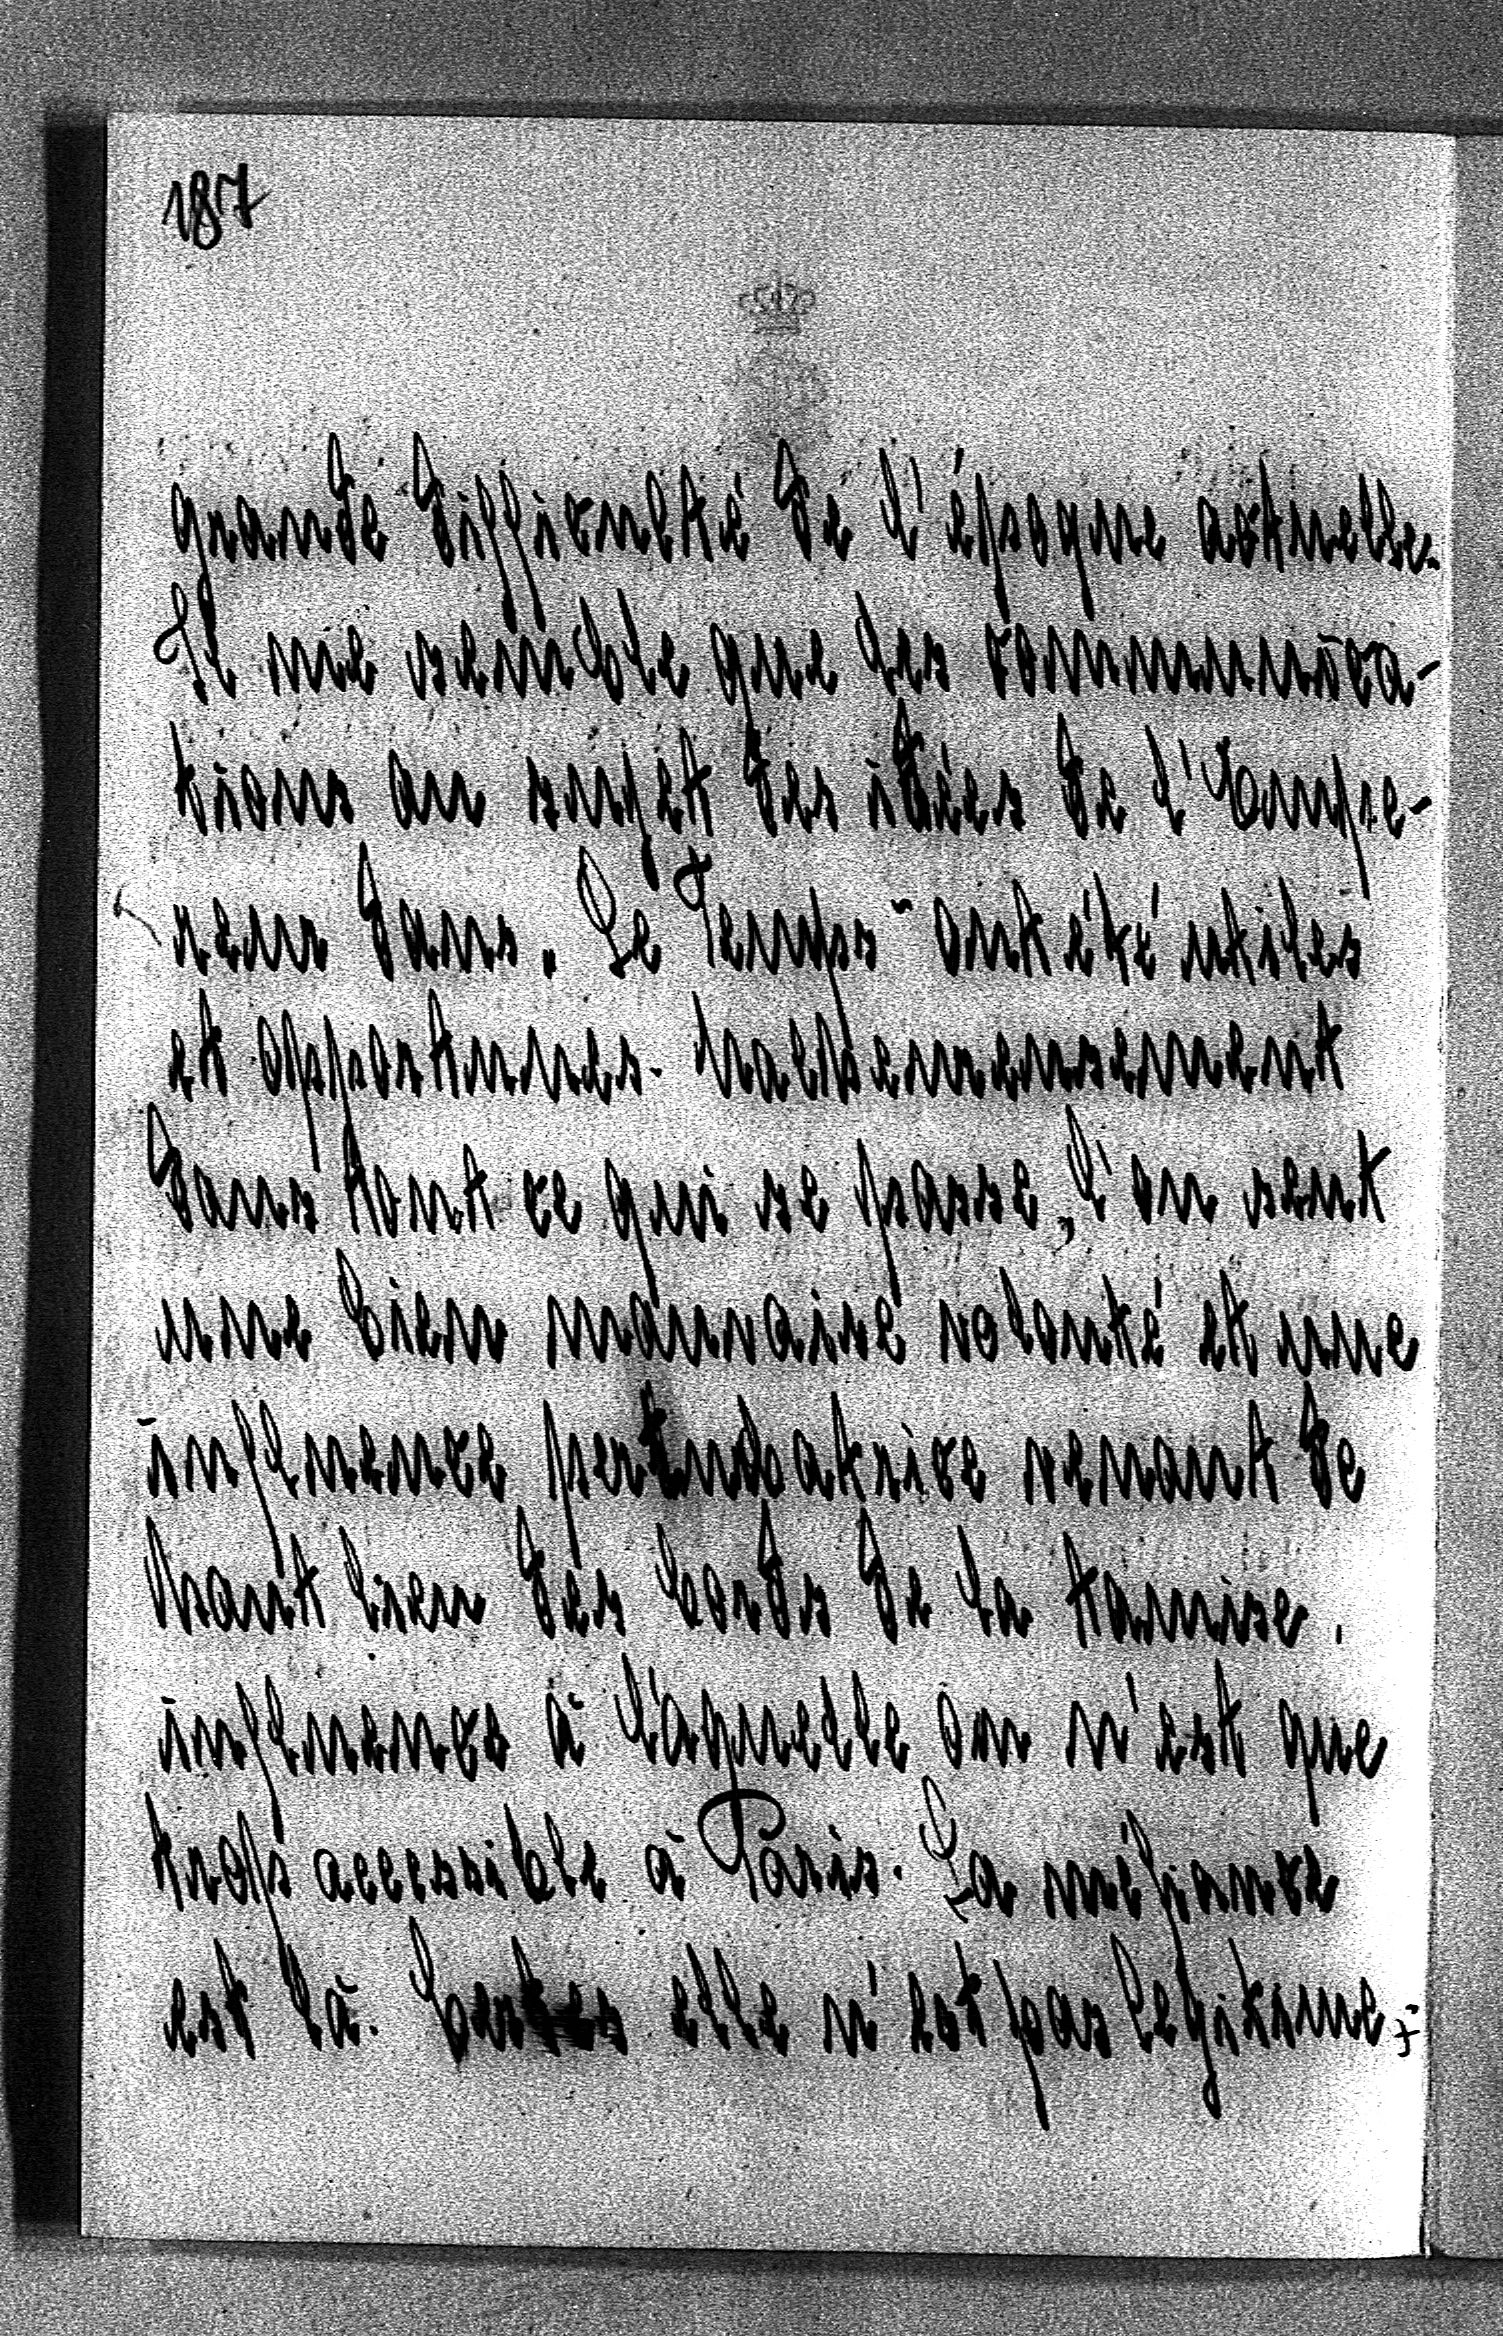 187
grande difficulté de l'époque actuelle.
Il me semble que les communica-
tions au sujet des idées de l'Empe-
reur dans „Le Temps" ont été utiles
et opportunes. Malheureusement
dans tout ce qui se passe, l'on sent
une bien mauvaise volonté et une
influence perturbatrice venant de
haut lieu des bords de la tamise.
influence à laquelle on n'est que
trop accessible à Paris. La méfiance
est là. elle n'est pas legitime;